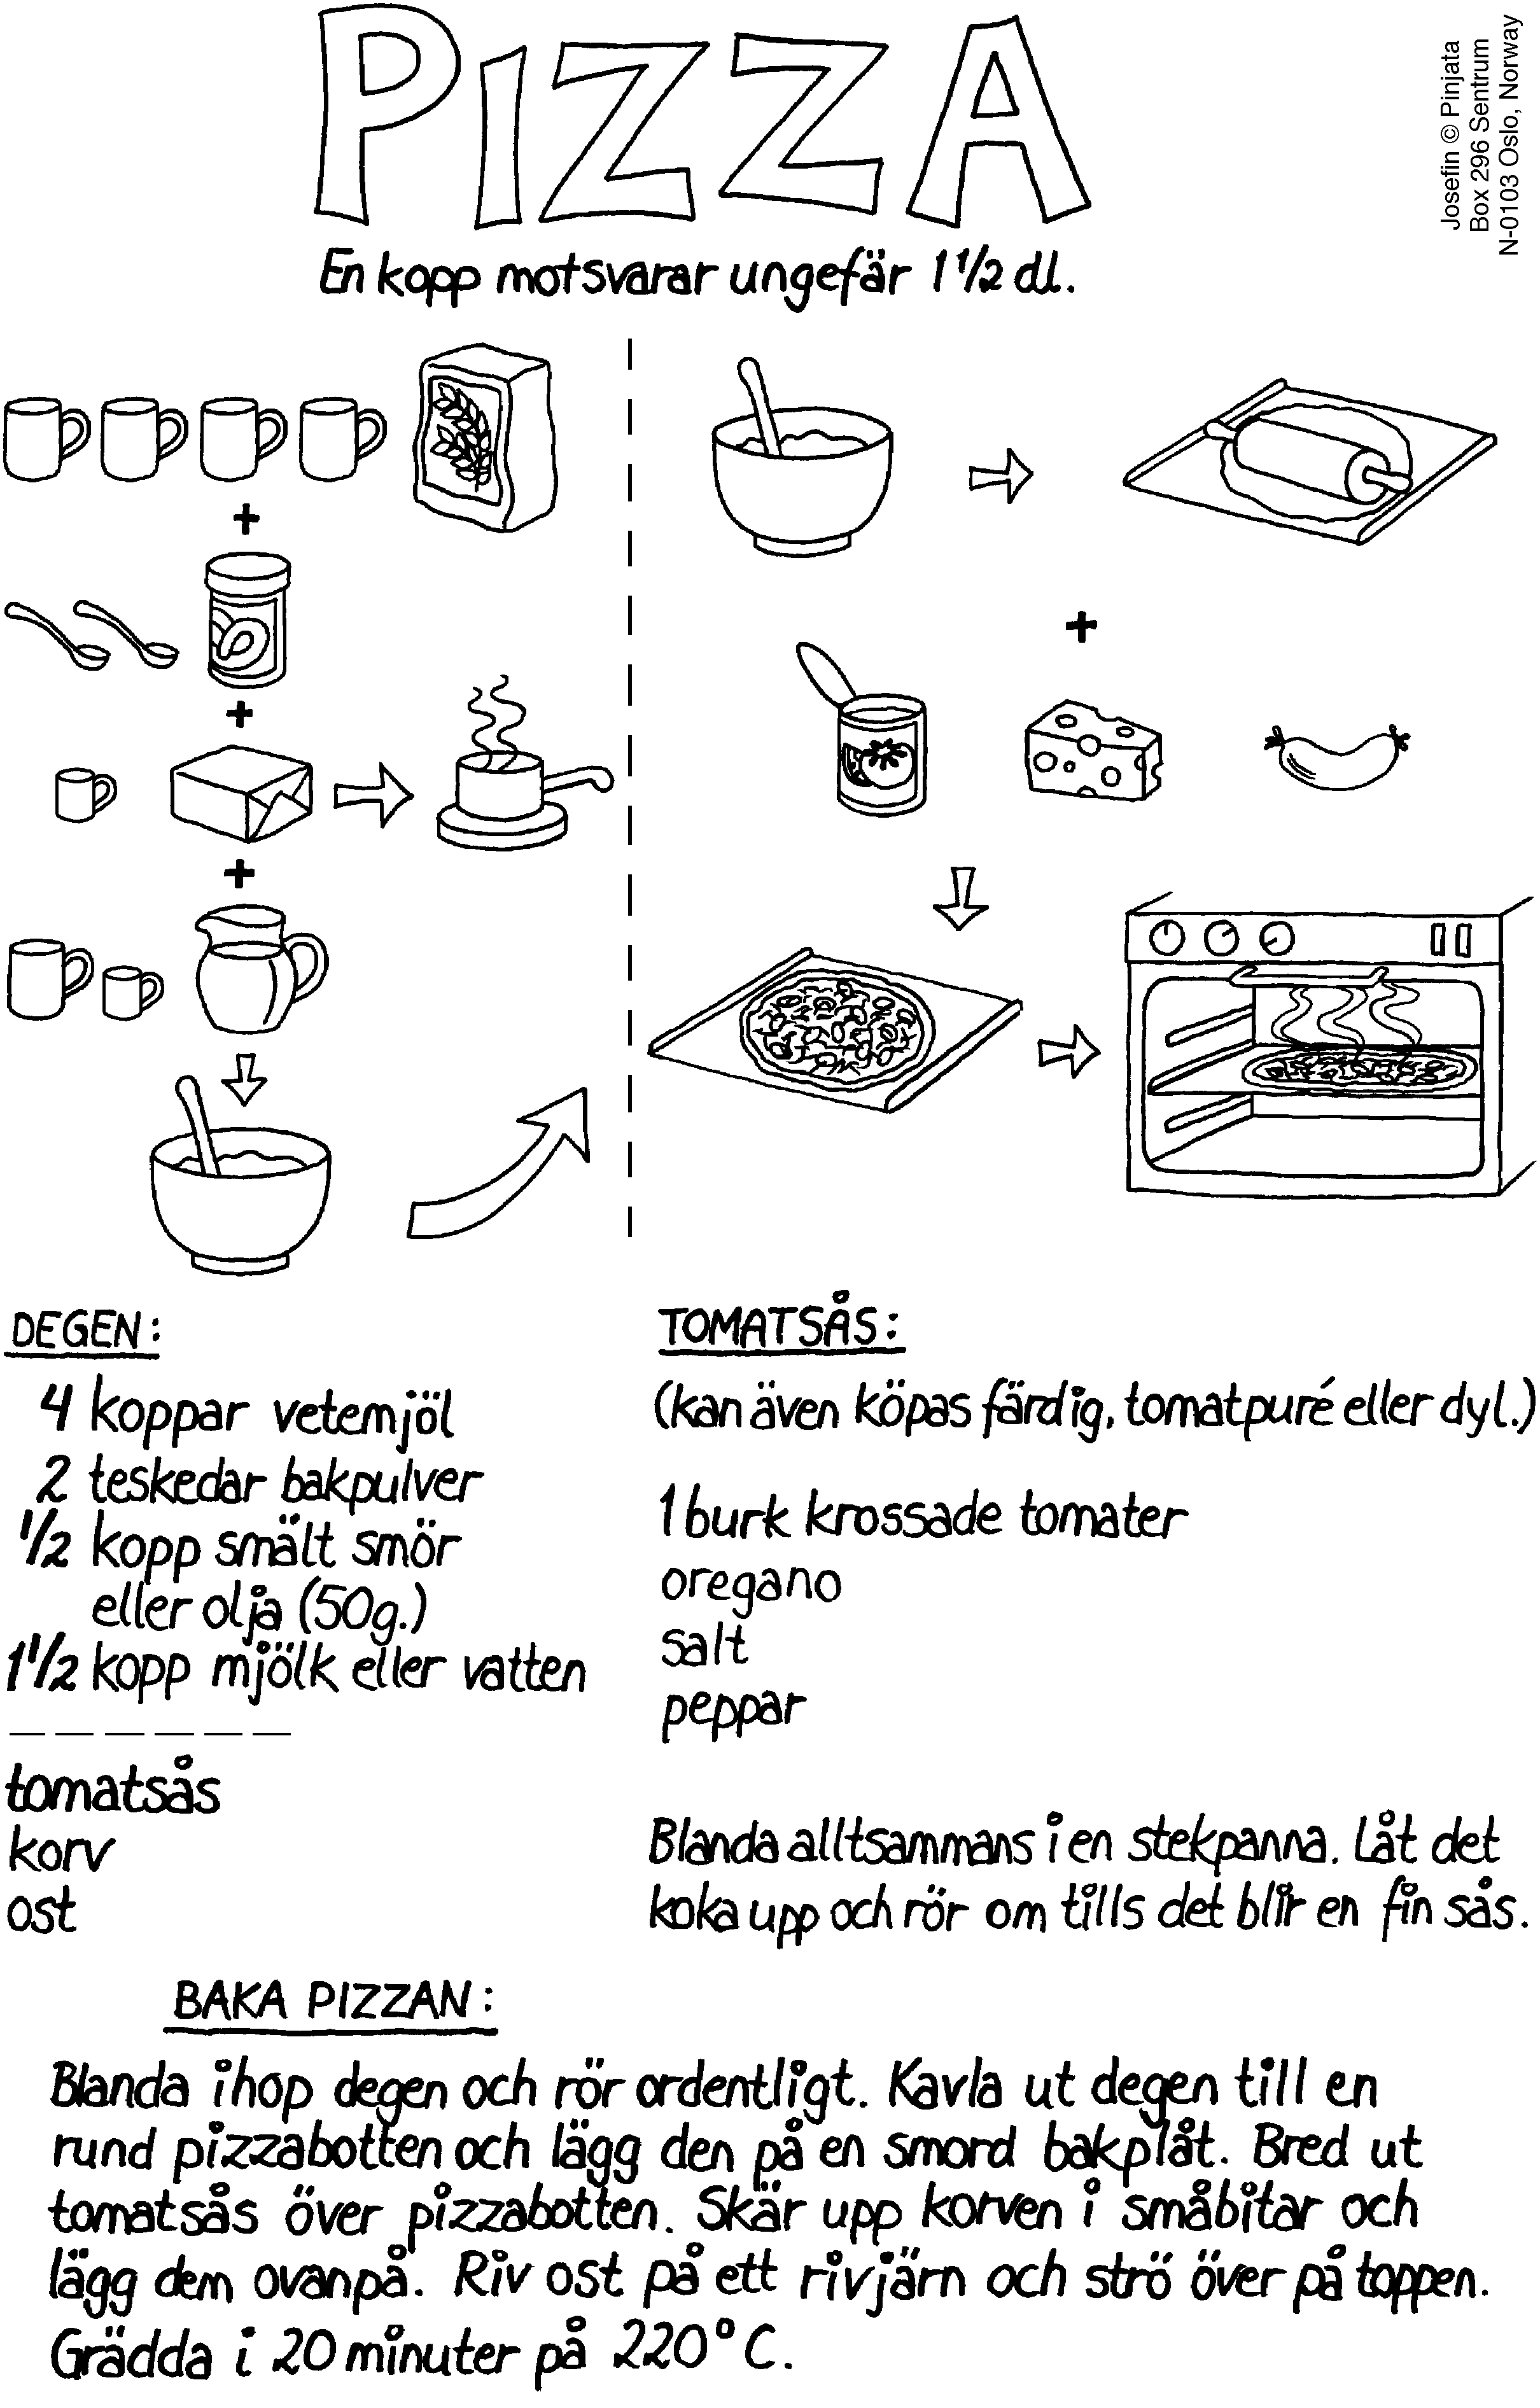 PIZZA
Josefin © Pinjata
Box 296 Sentrum
N-0103 Oslo, Norway
En kopp motsvarar ungefär 1 1/2 dl.
DEGEN:
4 koppar vetemjöl
2 teskedar bakpulver
1/2 kopp smält smör
eller olja (50g.)
1 1/2 kopp mjölk eller vatten
tomatsås
korv
ost
TOMATSÅS:
(kan även köpas färdig, tomatpuré eller dyl.)
1 burk krossade tomater
oregano
salt
peppar
Blanda alltsammans i en stekpanna. Låt det
koka upp och rör om tills det blir en fin sås.
BAKA PIZZAN:
Blanda ihop degen och rör ordentligt. Kavla ut degen till en
rund pizzabotten och lägg den på en smord bakplåt. Bred ut
tomatsås över pizzabotten. Skär upp korven i småbitar och
lägg dem ovanpå. Riv ost på ett rivjärn och strö över på toppen.
Grädda i 20 minuter på 220°C.